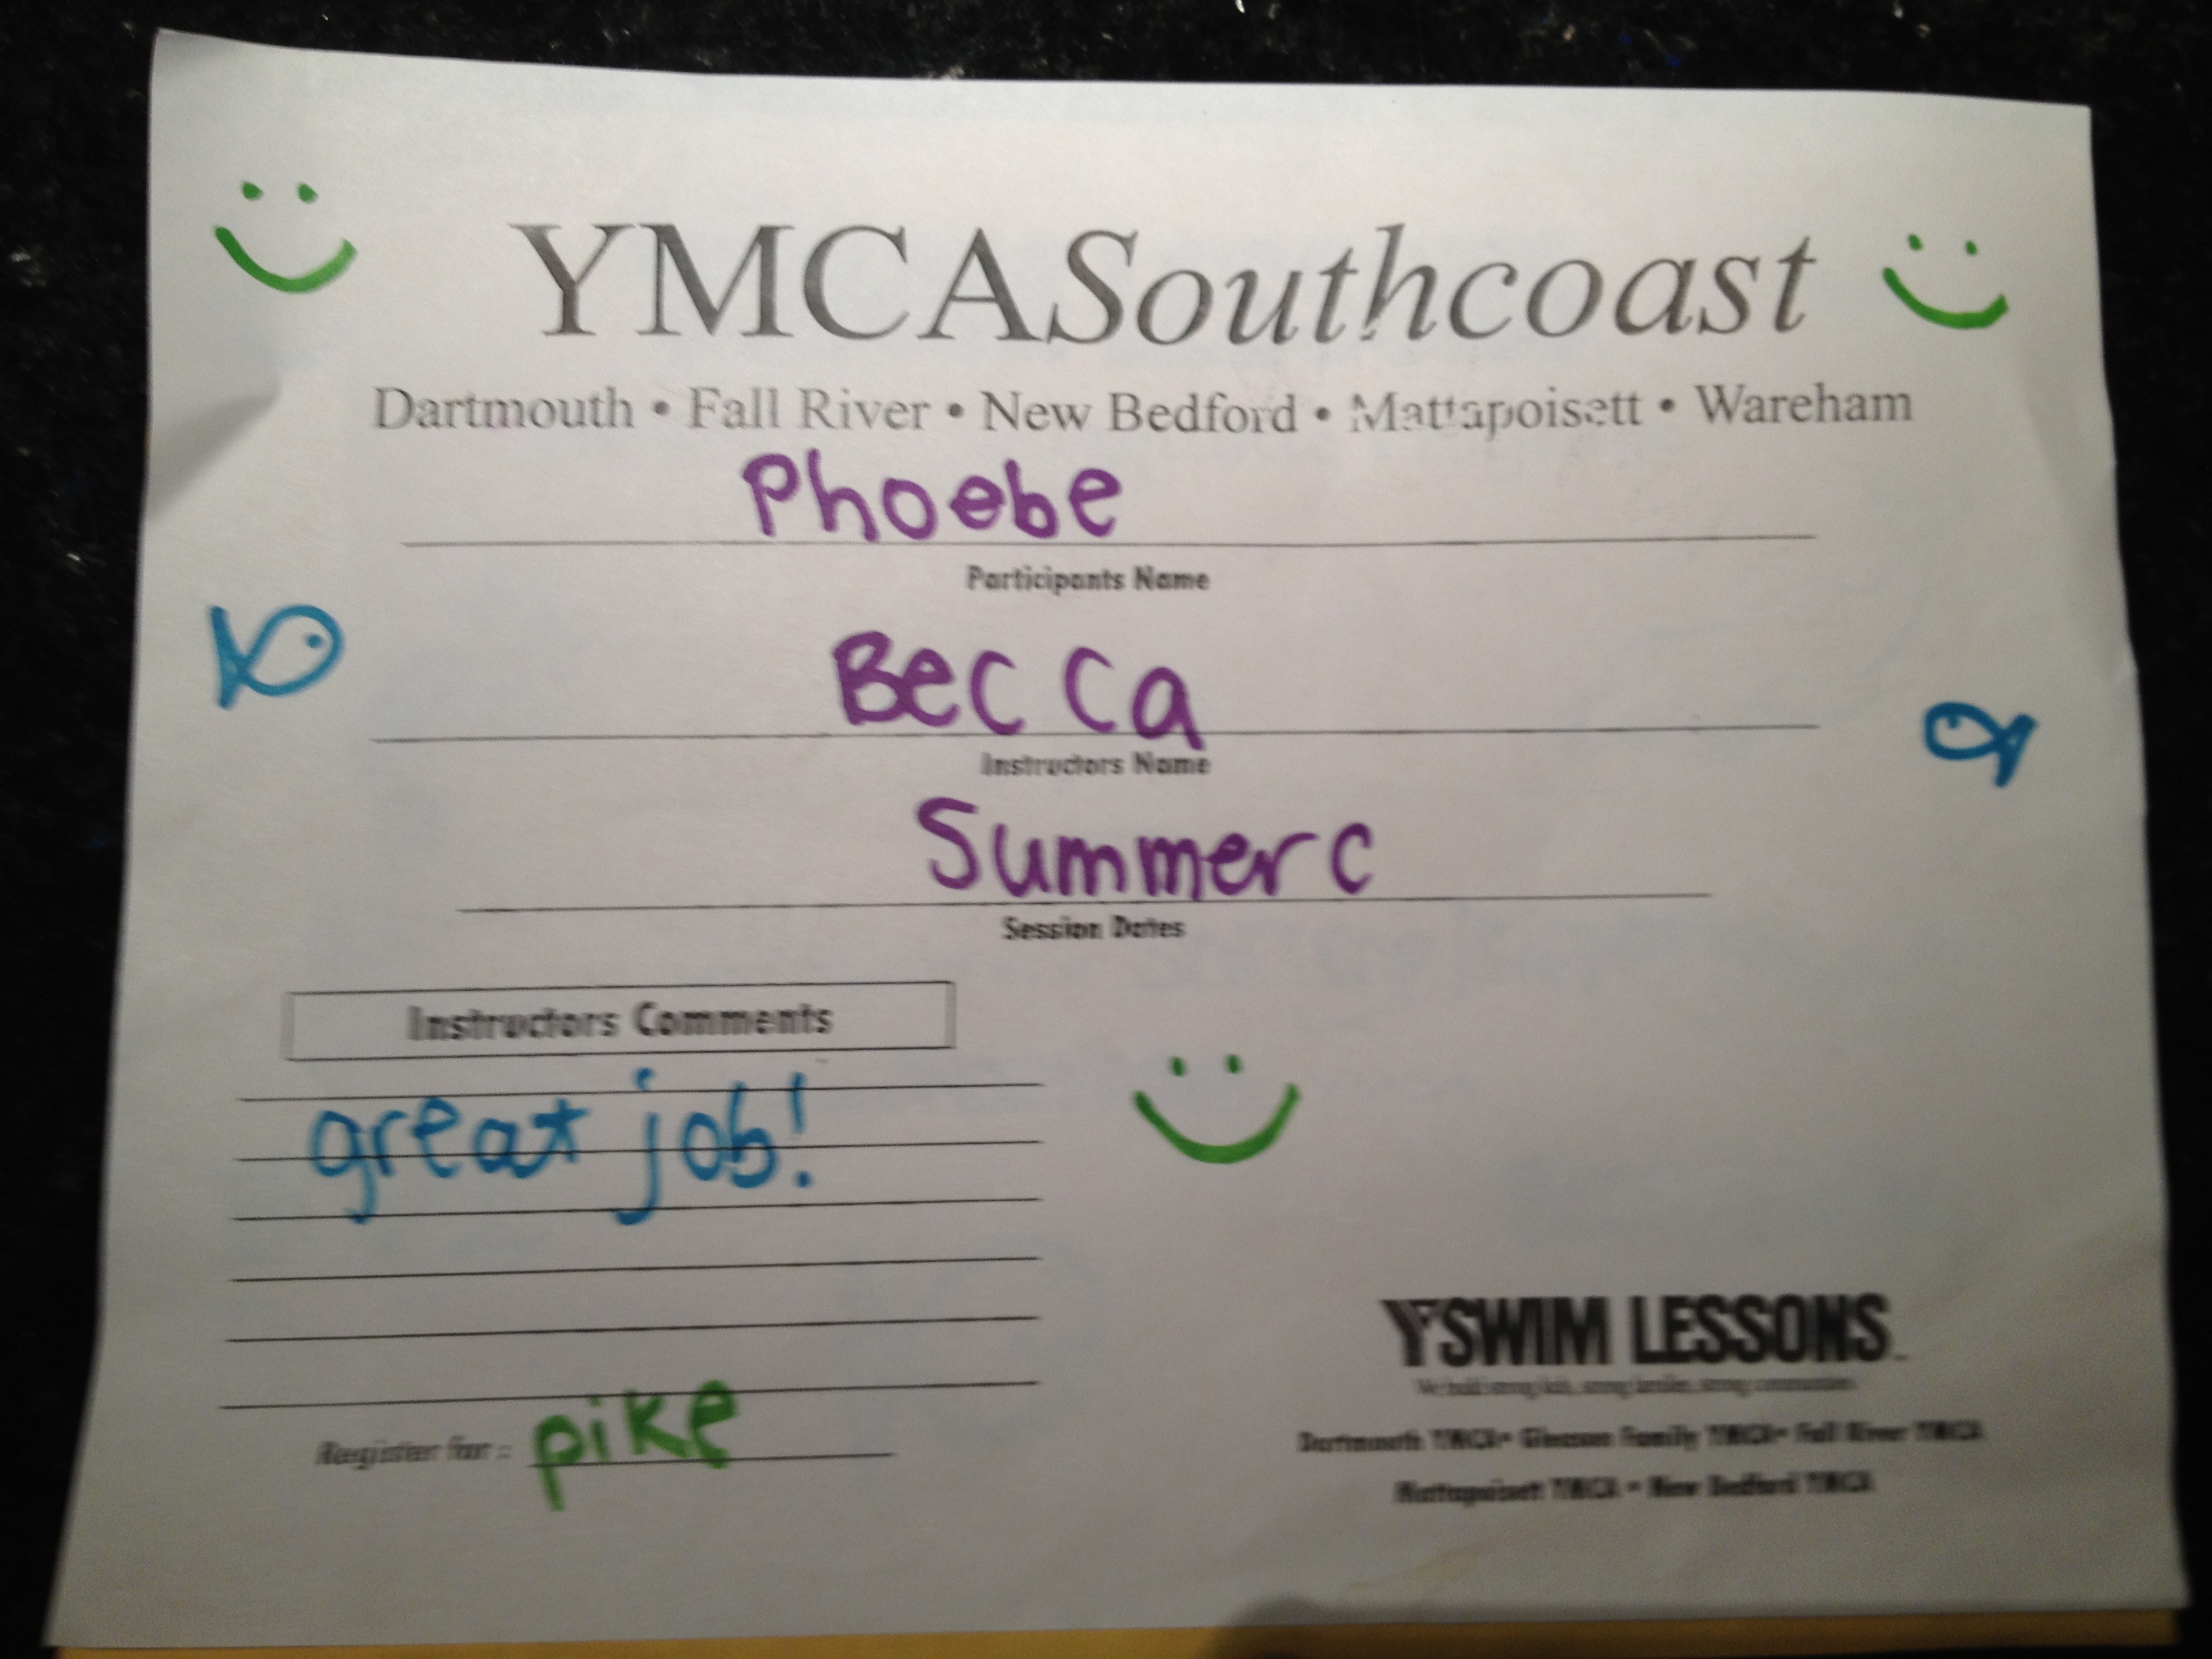 YMCASouthcoast
Dartmouth • Fall River • New Bedford • Mattapoisett • Wareham
Phoebe
Participants Name
Becca
Instructors Name
Summer C
Session Dates
Instructors Comments
great job!
Register for: pike
Y SWIM LESSONS
We build strong kids, strong families, strong communities
Dartmouth YMCA • Gleason Family YMCA • Fall River YMCA
Mattapoisett YMCA • New Bedford YMCA